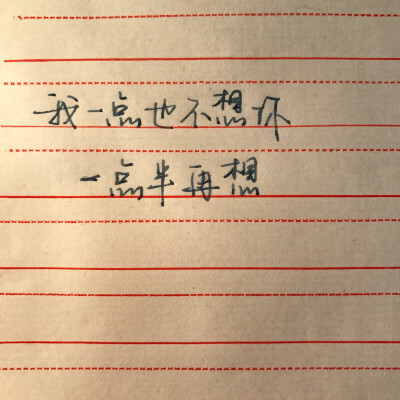 我一点也不想你
一点半再想